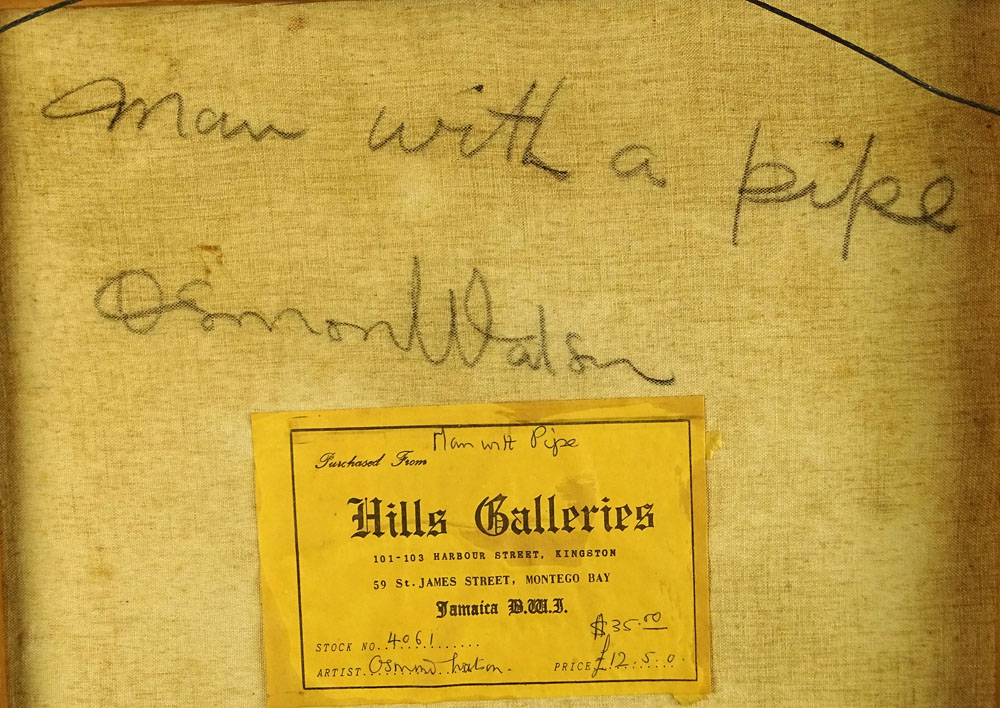 man with a pipe
Osmond Watson
Man with Pipe
Purchased From
Hills Galleries
101-103 HARBOUR STREET, KINGSTON
59 St. JAMES STREET, MONTEGO BAY
Jamaica B.W.I.
$35.00
STOCK NO. 4061
ARTIST. Osmond Watson. PRICE £12.5.0